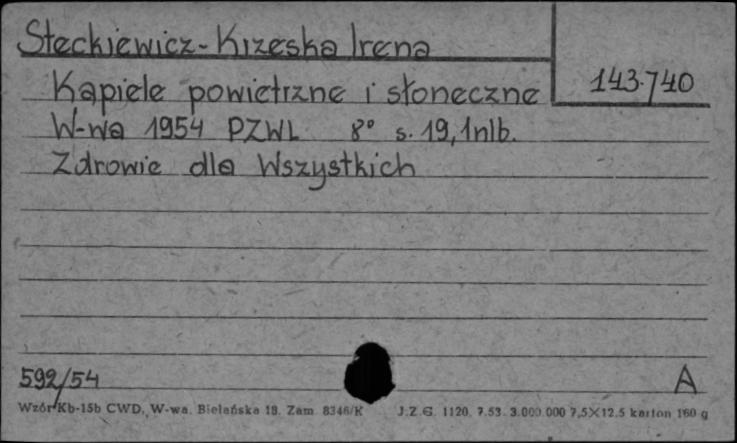 Steckiewicz-Krzeska Irena
143.740
Kąpiele powietrzne i słoneczne
W-wa 1954 PZWL 8° s. 19, 1nlb.
Zdrowie dla Wszystkich
592/54
A
Wzór Kb-15b CWD, W-wa. Bielańska 18. Zam. 8346/K J.Z.G. 1120. 7.53. 3.000.000 7,5×12.5 karton 160 g